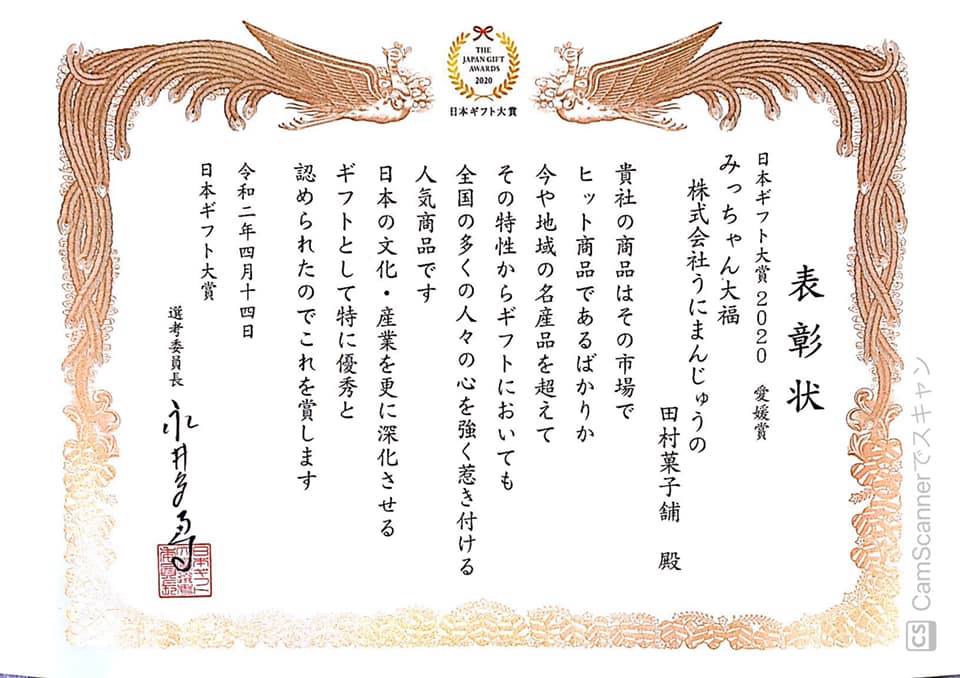 THE
JAPAN GIFT
AWARDS
2020
日本ギフト大賞
表彰状
日本ギフト大賞2020 愛媛賞
みっちゃん大福
株式会社うにまんじゅうの
田村菓子舗 殿
貴社の商品はその市場で
ヒット商品であるばかりか
今や地域の名産品を超えて
その特性からギフトにおいても
全国の多くの人々の心を強く惹き付ける
人気商品です
日本の文化・産業を更に深化させる
ギフトとして特に優秀と
認められたのでこれを賞します
令和二年四月十四日
日本ギフト大賞
選考委員長
CS CamScannerでスキャン